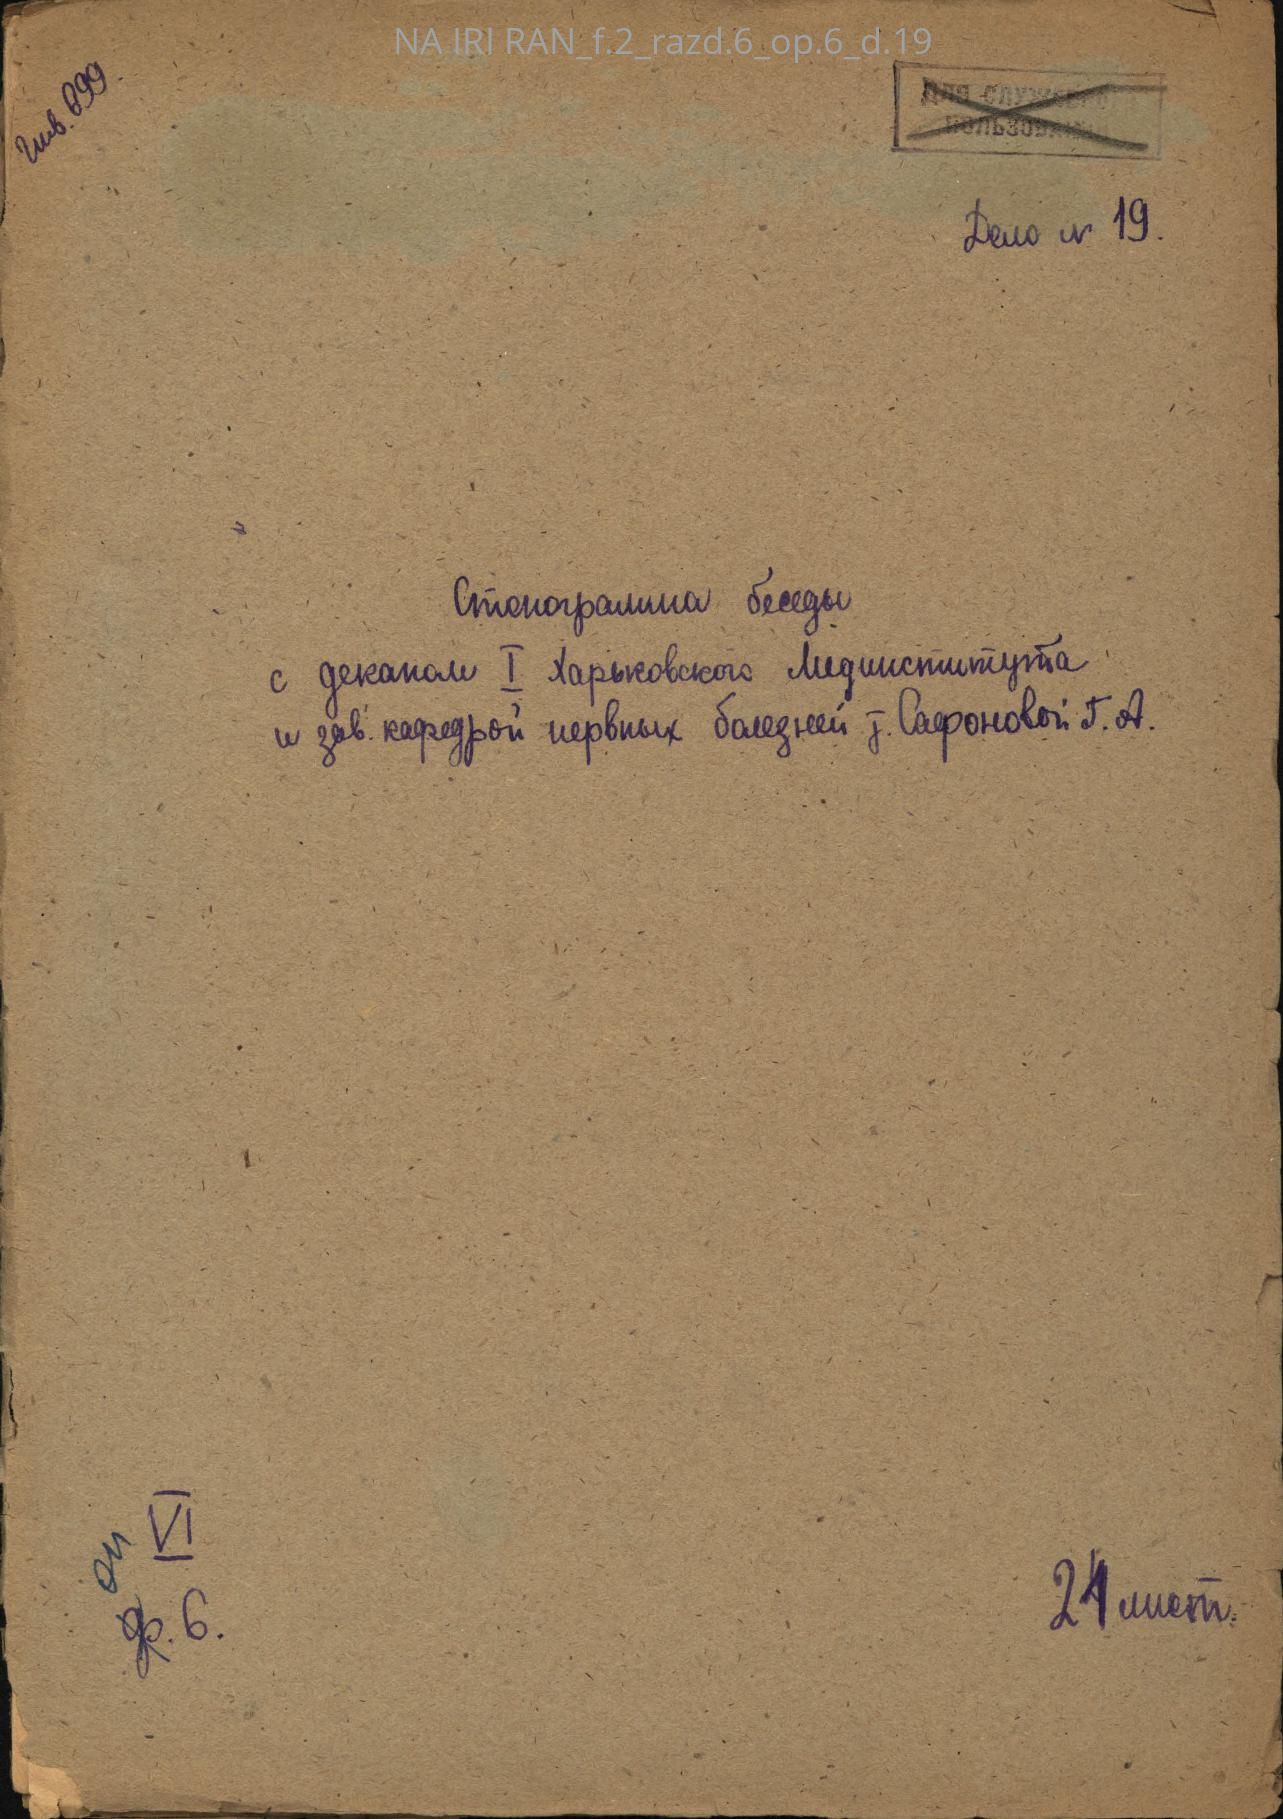 NA IRI RAN_f.2_razd.6_op.6_d.19
Инв. 899.
Для служебн
пользован
Дело № 19.
Стенограмма беседы
с деканом I Харьковского Мединститута
и зав. кафедрой нервных болезней т. Сафоновой Г. А.
VI
оп
ф. 6.
лист.